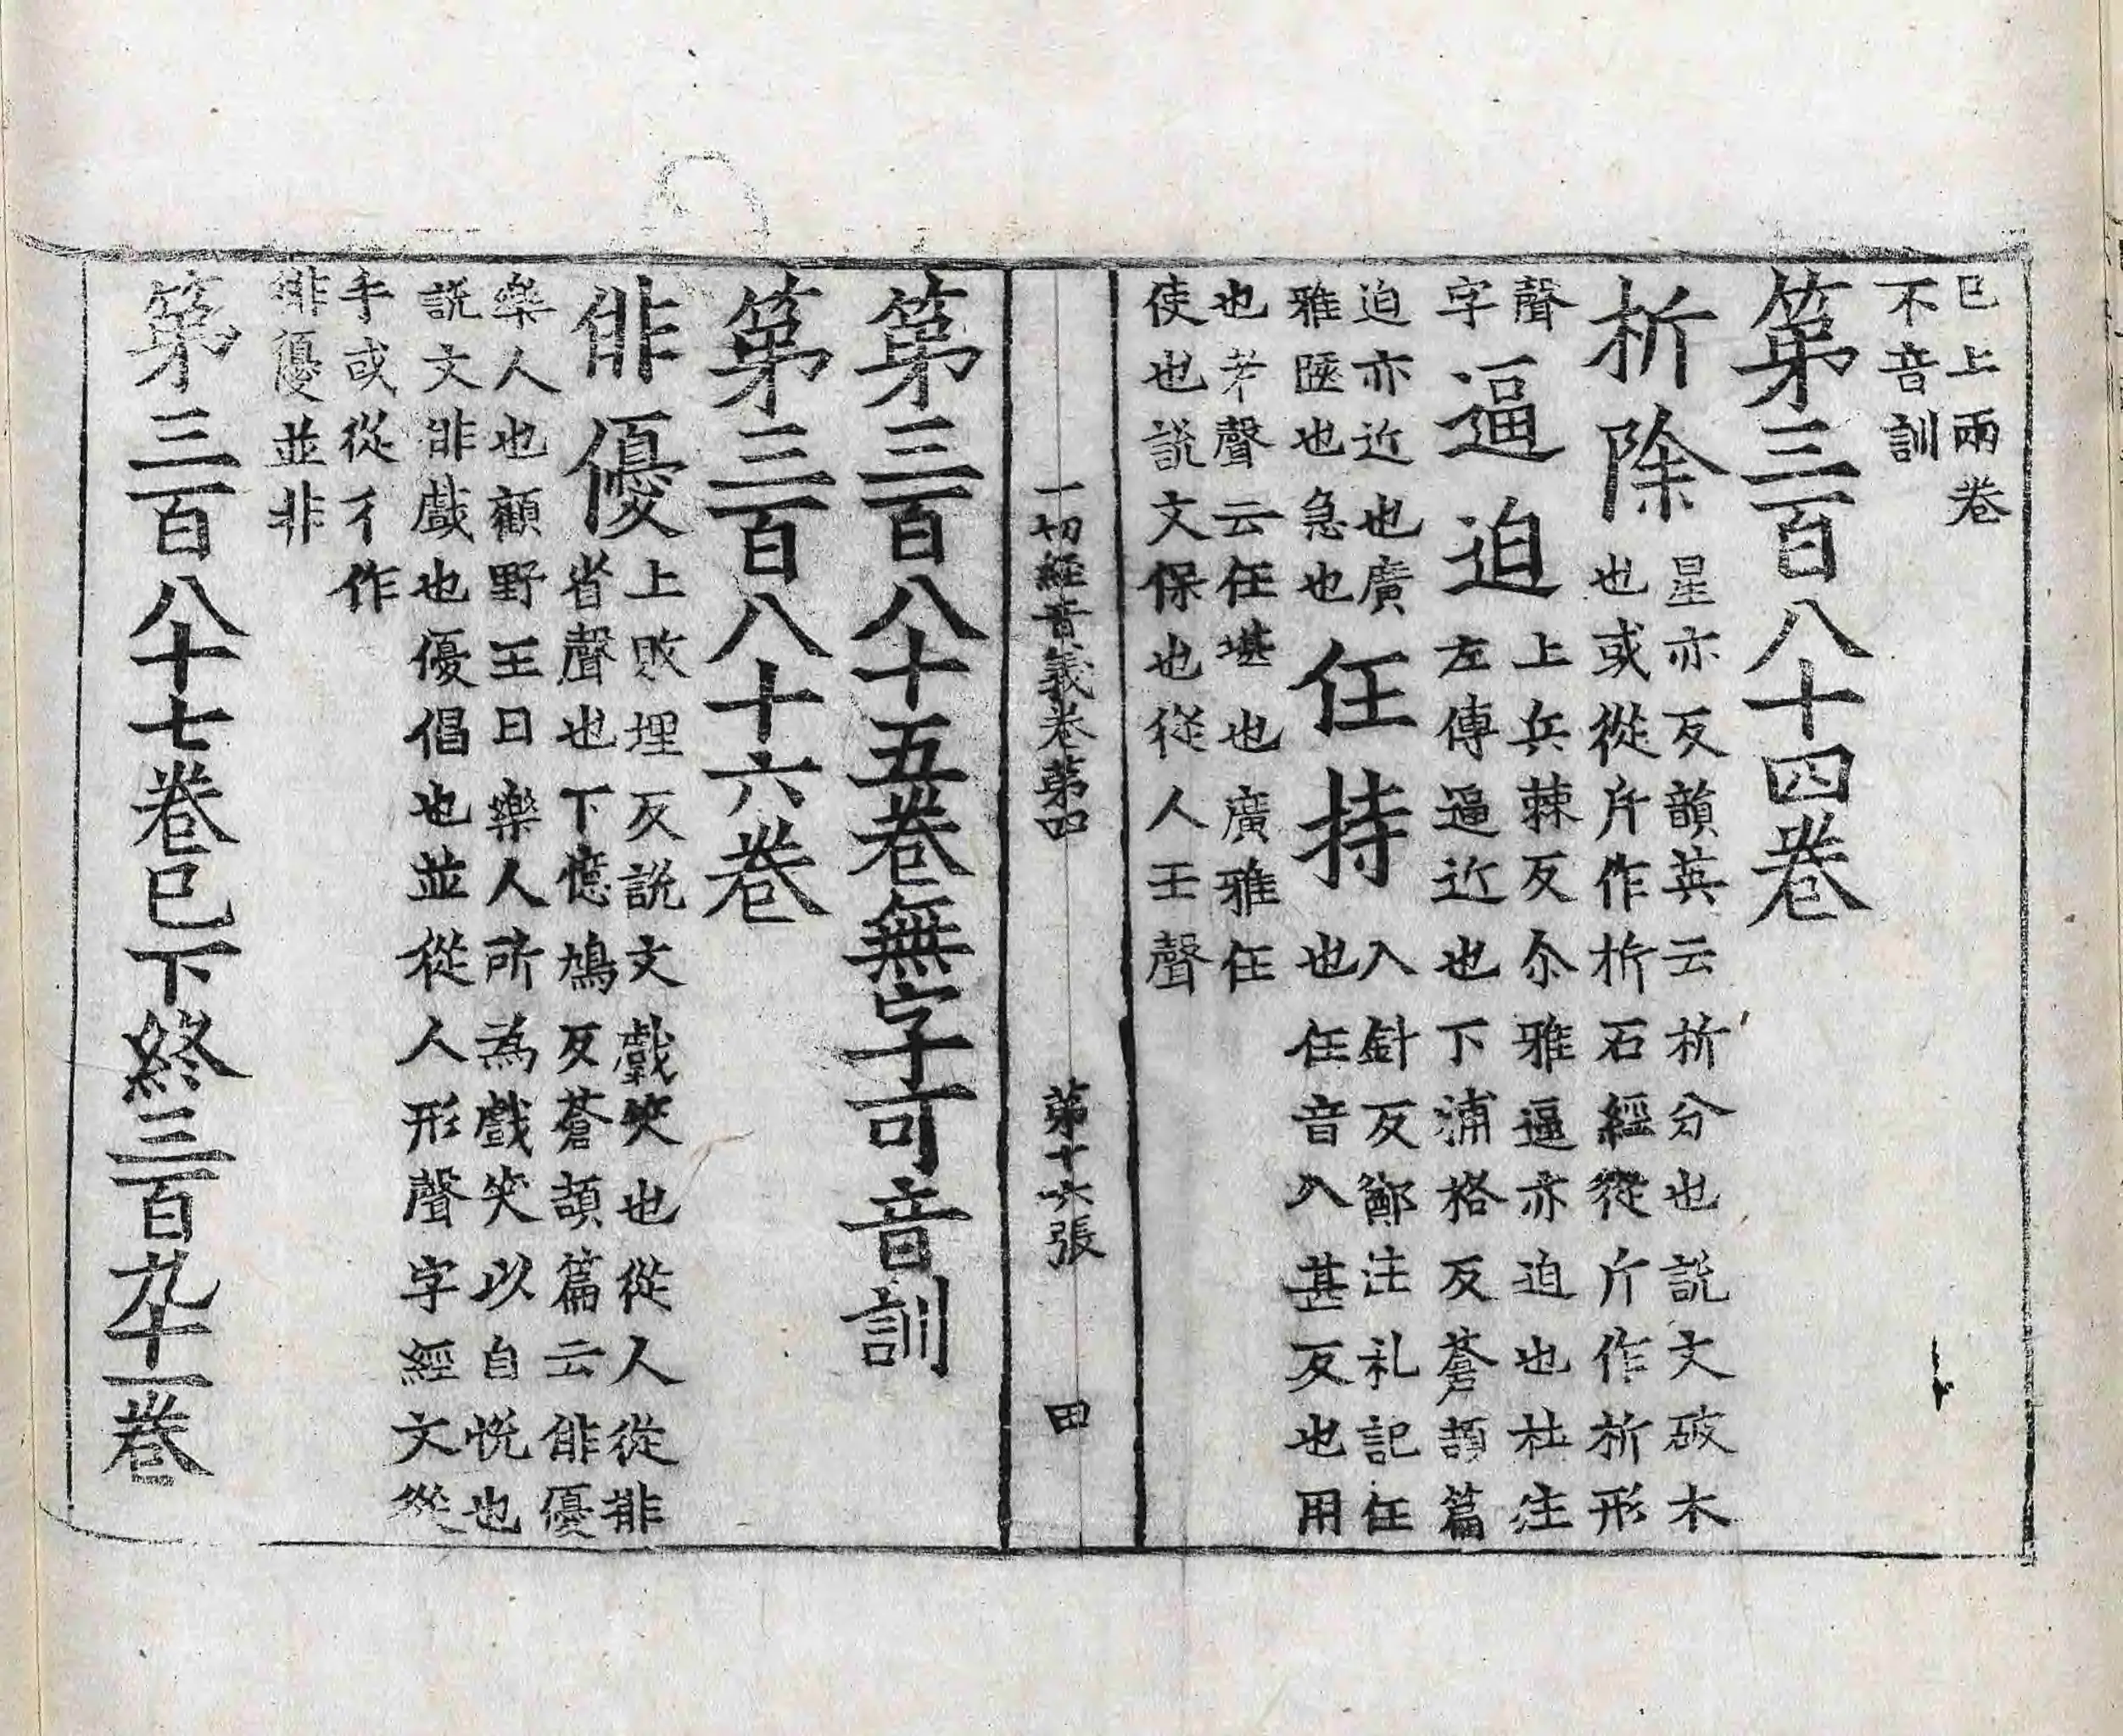 已上兩卷
不音訓
第三百八十四卷
析除星亦反韻英云析分也說文破木
也或從片作枂石經從斤作析形
聲
字
逼迫上兵棘反尒雅逼亦迫也杜注
左傳逼近也下浦格反蒼頡篇
迫亦近也廣
雅陿也急也
任持入針反鄭注礼記任
也任音入甚反也用
也若聲云任堪也廣雅任
使也說文保也從人壬聲
一切經音義卷第四 第十六張 田
第三百八十五卷無字可音訓
第三百八十六卷
俳優上敗埋反說文戲笑也從人從排
省聲也下憶鳩反蒼頡篇云俳優
樂人也顧野王曰樂人所為戲笑以自悅也
說文俳戲也優倡也並從人形聲字經文從
手或從彳作
俳優並非
第三百八十七卷已下終三百九十一卷